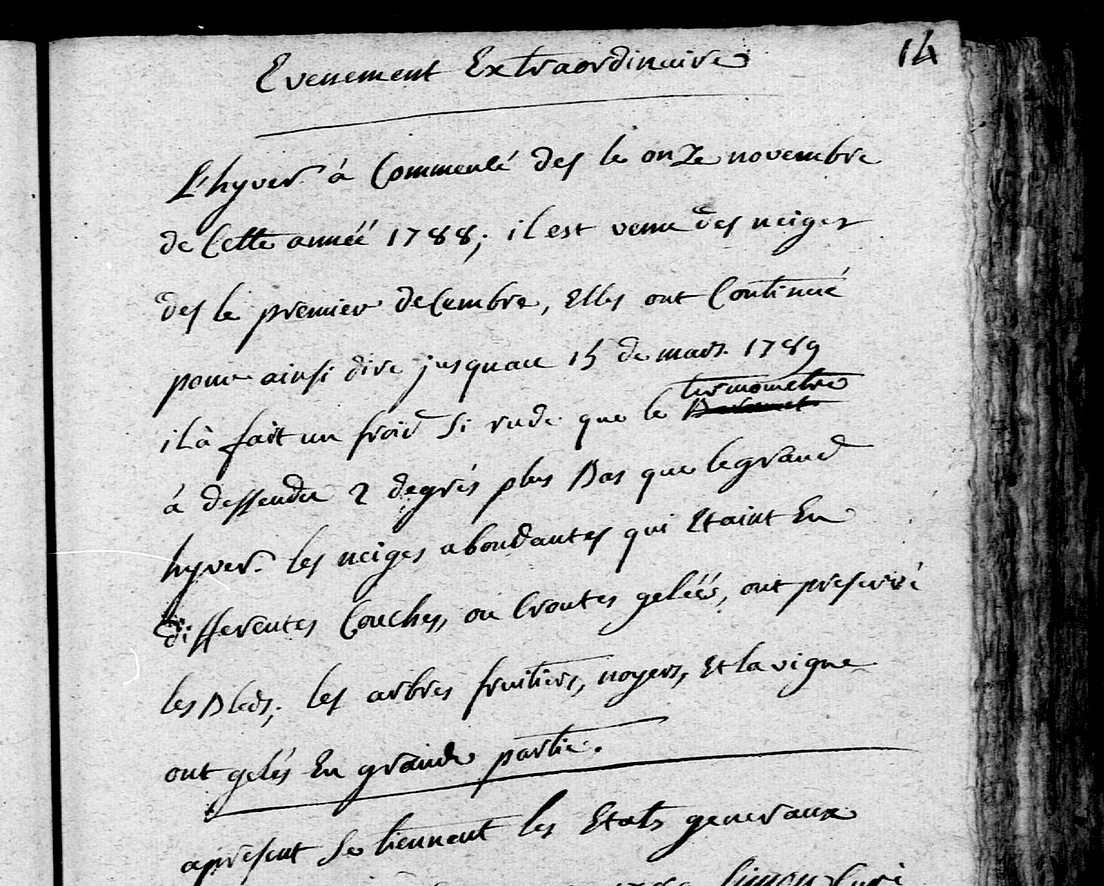 Evenement Extraordinaire
14
L'hyver à Commencé des le onze novembre
de Cette année 1788; il est venu des neiges
des le premier decembre, Elles ont Continué
pour ainsi dire jusquau 15 de mars 1789
il à fait un froid si rude que le termometre
à dessendu 2 degrés plus Bas que le grand
hyver. les neiges abondantes qui Etaint En
differentes Couches, ou Croutes gelées, ont preservé
les Bleds; les arbres fruitiers, noyers, Et la vigne
ont gelés En grande partie.
apresent Se tiennent les Etats generaux
Simon Curé